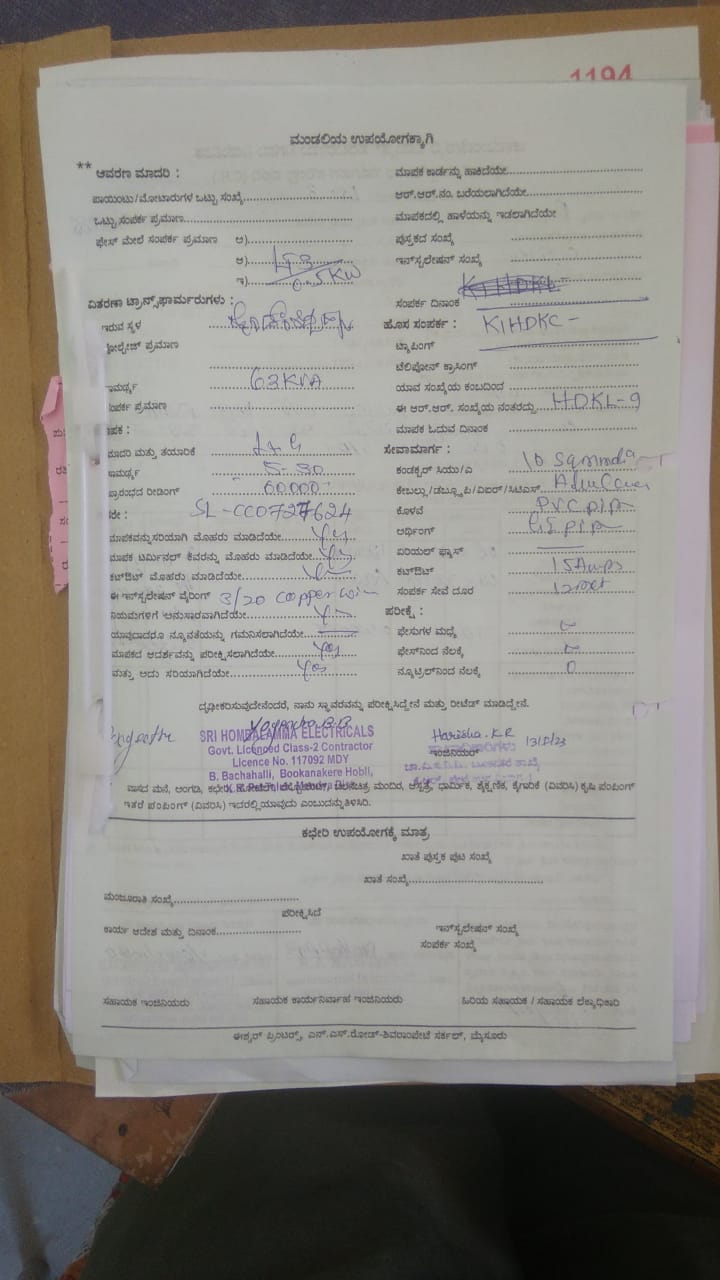 1194
ಮಂಡಲಿಯ ಉಪಯೋಗಕ್ಕಾಗಿ
** ಆವರಣ ಮಾದರಿ :
ಪಾಯಿಂಟು/ಮೋಟಾರುಗಳ ಒಟ್ಟು ಸಂಖ್ಯೆ
ಒಟ್ಟು ಸಂಪರ್ಕ ಪ್ರಮಾಣ
ಫೇಸ್ ಮೇಲೆ ಸಂಪರ್ಕ ಪ್ರಮಾಣ ಅ)
ಆ)
ಇ) 0.5KW
ವಿತರಣಾ ಟ್ರಾನ್ಸ್‌ಫಾರ್ಮರುಗಳು :
ಇರುವ ಸ್ಥಳ
ಪ್ರಮಾಣ
63KVA
ಸಂಪರ್ಕ ಪ್ರಮಾಣ
ಮಾದರಿ ಮತ್ತು ತಯಾರಿಕೆ L+G
5-30
ಪ್ರಾರಂಭದ ರೀಡಿಂಗ್ 00000
SL-CC0727624
ಮಾಪಕವನ್ನು ಸರಿಯಾಗಿ ಮೊಹರು ಮಾಡಿದೆಯೇ Yes
ಮಾಪಕ ಟರ್ಮಿನಲ್ ಕವರನ್ನು ಮೊಹರು ಮಾಡಿದೆಯೇ Yes
ಕಟ್‌ಔಟ್ ಮೊಹರು ಮಾಡಿದೆಯೇ Yes
ಈ ಇನ್‌ಸ್ಟಲೇಷನ್ ವೈರಿಂಗ್ 3/20 copper wire
ನಿಯಮಗಳಿಗೆ ಅನುಸಾರವಾಗಿದೆಯೇ Yes
ಯಾವುದಾದರೂ ನ್ಯೂನತೆಯನ್ನು ಗಮನಿಸಲಾಗಿದೆಯೇ
ಮಾಪಕದ ಆದರ್ಶವನ್ನು ಪರೀಕ್ಷಿಸಲಾಗಿದೆಯೇ Yes
ಮತ್ತು ಅದು ಸರಿಯಾಗಿದೆಯೇ Yes
ಮಾಪಕ ಕಾರ್ಡನ್ನು ಹಾಕಿದೆಯೇ
ಆರ್.ಆರ್.ನಂ. ಬರೆಯಲಾಗಿದೆಯೇ
ಮಾಪಕದಲ್ಲಿ ಹಾಳೆಯನ್ನು ಇಡಲಾಗಿದೆಯೇ
ಪುಸ್ತಕದ ಸಂಖ್ಯೆ
ಇನ್‌ಸ್ಟಲೇಷನ್ ಸಂಖ್ಯೆ
ಸಂಪರ್ಕ ದಿನಾಂಕ
ಹೊಸ ಸಂಪರ್ಕ : K1HDKL-
ಟ್ಯಾಪಿಂಗ್
ಟೆಲಿಫೋನ್ ಕ್ರಾಸಿಂಗ್
ಯಾವ ಸಂಖ್ಯೆಯ ಕಂಬದಿಂದ
ಈ ಆರ್.ಆರ್. ಸಂಖ್ಯೆಯ ನಂತರದ್ದು HDKL-9
ಮಾಪಕ ಓದುವ ದಿನಾಂಕ
ಸೇವಾಮಾರ್ಗ :
ಕಂಡಕ್ಟರ್ ಸಿಯು/ಎ 10 Sqmm
ಕೇಬಲ್ಲು/ಡಬ್ಲ್ಯೂಪಿ/ಎಐಆರ್/ಸಿಟಿಎಸ್
ಕೊಳವೆ PVC pipe
ಅರ್ಥಿಂಗ್ GI pipe
ಏರಿಯಲ್ ಫ್ಯೂಸ್
ಕಟ್‌ಔಟ್ 15Amps
ಸಂಪರ್ಕ ಸೇವೆ ದೂರ
ಪರೀಕ್ಷೆ :
ಫೇಸುಗಳ ಮಧ್ಯೆ
ಫೇಸ್‌ನಿಂದ ನೆಲಕ್ಕೆ
ನ್ಯೂಟ್ರಲ್‌ನಿಂದ ನೆಲಕ್ಕೆ 0
ದೃಢೀಕರಿಸುವುದೇನೆಂದರೆ, ನಾನು ಸ್ಥಾವರವನ್ನು ಪರೀಕ್ಷಿಸಿದ್ದೇನೆ ಮತ್ತು ರೀಟೆಡ್ ಮಾಡಿದ್ದೇನೆ.
SRI HOMBALAMMA ELECTRICALS
Govt. Licenced Class-2 Contractor
Licence No. 117092 MDY
B. Bachahalli, Bookanakere Hobli,
Harisha.K.R 13/5/23
ಇಂಜಿನಿಯರ್
ವಾಸದ ಮನೆ, ಅಂಗಡಿ, ಕಛೇರಿ, ಚಲನಚಿತ್ರ ಮಂದಿರ, ಆಸ್ಪತ್ರೆ, ಧಾರ್ಮಿಕ, ಶೈಕ್ಷಣಿಕ, ಕೈಗಾರಿಕೆ (ವಿವರಿಸಿ) ಕೃಷಿ ಪಂಪಿಂಗ್
ಇತರೆ ಪಂಪಿಂಗ್ (ವಿವರಿಸಿ) ಇದರಲ್ಲಿ ಯಾವುದು ಎಂಬುದನ್ನು ತಿಳಿಸಿರಿ.
ಕಛೇರಿ ಉಪಯೋಗಕ್ಕೆ ಮಾತ್ರ
ಖಾತೆ ಪುಸ್ತಕ ಪುಟ ಸಂಖ್ಯೆ
ಖಾತೆ ಸಂಖ್ಯೆ
ಮಂಜೂರಾತಿ ಸಂಖ್ಯೆ
ಪರೀಕ್ಷಿಸಿದೆ
ಕಾರ್ಯ ಆದೇಶ ಮತ್ತು ದಿನಾಂಕ
ಇನ್‌ಸ್ಟಲೇಷನ್ ಸಂಖ್ಯೆ
ಸಂಪರ್ಕ ಸಂಖ್ಯೆ
ಸಹಾಯಕ ಇಂಜಿನಿಯರು ಸಹಾಯಕ ಕಾರ್ಯನಿರ್ವಾಹ ಇಂಜಿನಿಯರು ಹಿರಿಯ ಸಹಾಯಕ / ಸಹಾಯಕ ಲೆಕ್ಕಾಧಿಕಾರಿ
ಈಶ್ವರ್ ಪ್ರಿಂಟರ್ಸ್, ಎನ್.ಎಸ್.ರೋಡ್-ಶಿವರಾಂಪೇಟೆ ಸರ್ಕಲ್, ಮೈಸೂರು